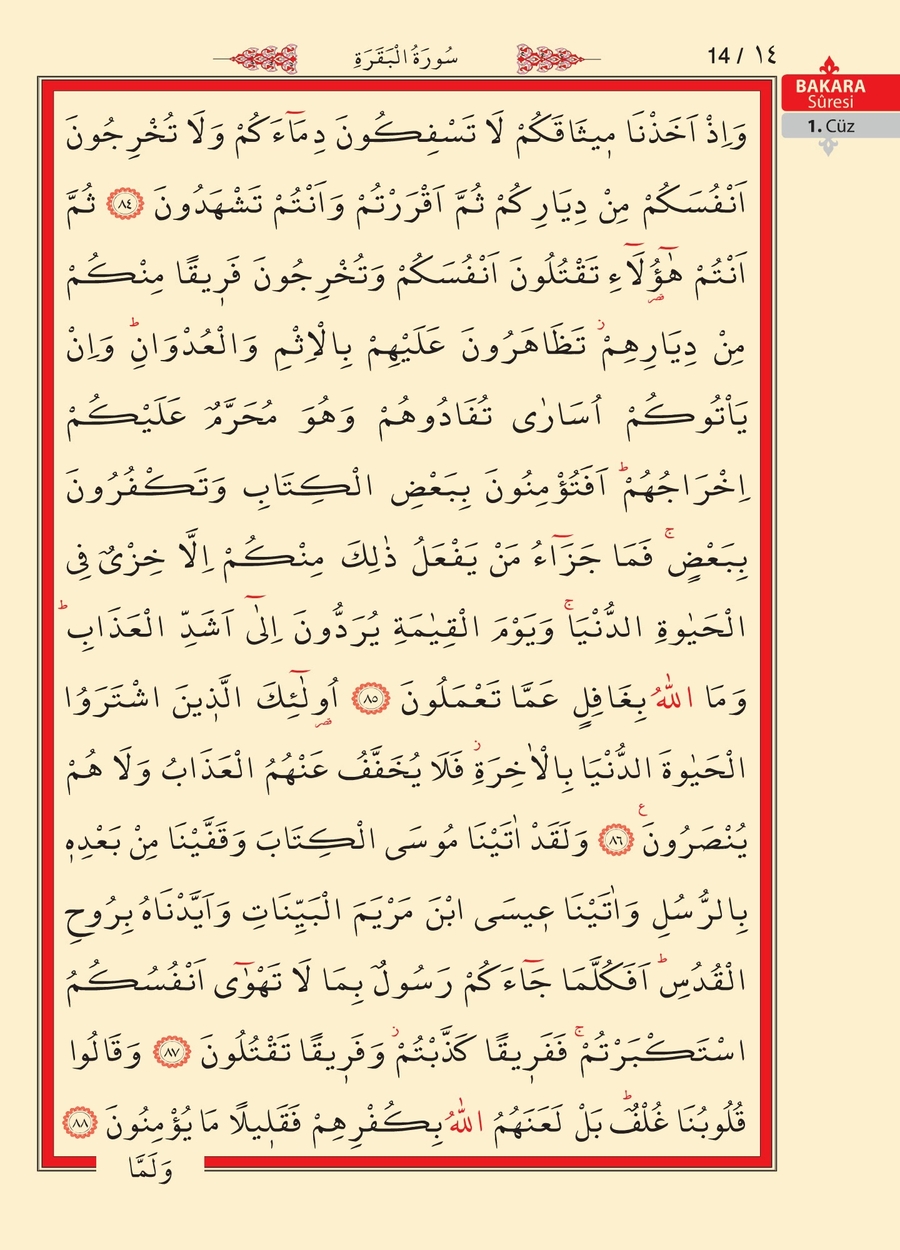 14 / ١٤
سُورَةُ الْبَقَرَةِ
BAKARA
Sûresi
1. Cüz
وَاِذْ اَخَذْنَا م۪يثَاقَكُمْ لَا تَسْفِكُونَ دِمَٓاءَكُمْ وَلَا تُخْرِجُونَ
اَنْفُسَكُمْ مِنْ دِيَارِكُمْ ثُمَّ اَقْرَرْتُمْ وَاَنْتُمْ تَشْهَدُونَ ﴿٨٤﴾ ثُمَّ
اَنْتُمْ هٰٓؤُ۬لَٓاءِ تَقْتُلُونَ اَنْفُسَكُمْ وَتُخْرِجُونَ فَر۪يقًا مِنْكُمْ
مِنْ دِيَارِهِمْ ز تَظَاهَرُونَ عَلَيْهِمْ بِالْاِثْمِ وَالْعُدْوَانِ ط وَاِنْ
يَأْتُوكُمْ اُسَارٰى تُفَادُوهُمْ وَهُوَ مُحَرَّمٌ عَلَيْكُمْ
اِخْرَاجُهُمْ ط اَفَتُؤْمِنُونَ بِبَعْضِ الْكِتَابِ وَتَكْفُرُونَ
بِبَعْضٍ ج فَمَا جَزَٓاءُ مَنْ يَفْعَلُ ذٰلِكَ مِنْكُمْ اِلَّا خِزْىٌ فِى
الْحَيٰوةِ الدُّنْيَا ج وَيَوْمَ الْقِيٰمَةِ يُرَدُّونَ اِلٰٓى اَشَدِّ الْعَذَابِ ط
وَمَا اللّٰهُ بِغَافِلٍ عَمَّا تَعْمَلُونَ ﴿٨٥﴾ اُو۬لٰٓئِكَ الَّذ۪ينَ اشْتَرَوُا
الْحَيٰوةَ الدُّنْيَا بِالْاٰخِرَةِ ز فَلَا يُخَفَّفُ عَنْهُمُ الْعَذَابُ وَلَا هُمْ
يُنْصَرُونَ ع ﴿٨٦﴾ وَلَقَدْ اٰتَيْنَا مُوسَى الْكِتَابَ وَقَفَّيْنَا مِنْ بَعْدِه۪
بِالرُّسُلِ وَاٰتَيْنَا ع۪يسَى ابْنَ مَرْيَمَ الْبَيِّنَاتِ وَاَيَّدْنَاهُ بِرُوحِ
الْقُدُسِ ط اَفَكُلَّمَا جَٓاءَكُمْ رَسُولٌ بِمَا لَا تَهْوٰٓى اَنْفُسُكُمُ
اسْتَكْبَرْتُمْ ج فَفَر۪يقًا كَذَّبْتُمْ ز وَفَر۪يقًا تَقْتُلُونَ ﴿٨٧﴾ وَقَالُوا
قُلُوبُنَا غُلْفٌ ط بَلْ لَعَنَهُمُ اللّٰهُ بِكُفْرِهِمْ فَقَل۪يلًا مَا يُؤْمِنُونَ ﴿٨٨﴾
وَلَمَّا